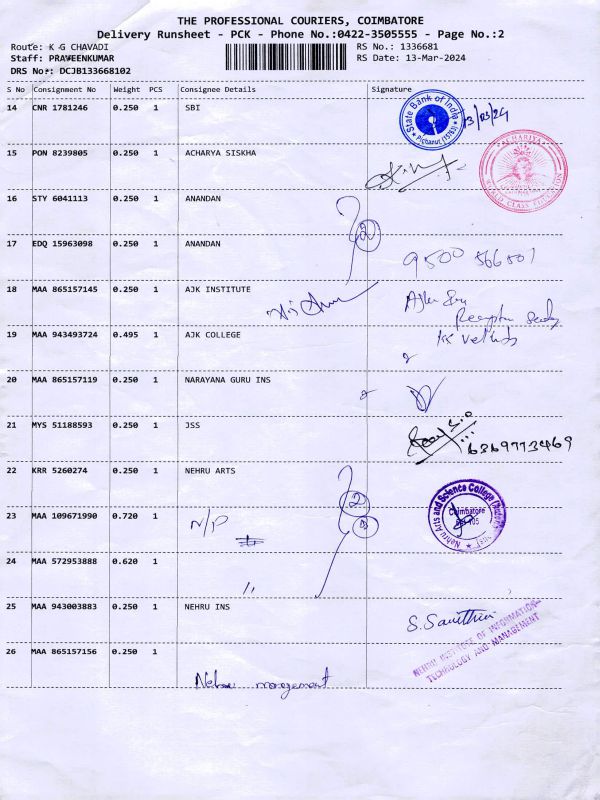 THE PROFESSIONAL COURIERS, COIMBATORE
Delivery Runsheet - PCK - Phone No.:0422-3505555 - Page No.:2
Route: K G CHAVADI
Staff: PRAWEENKUMAR
DRS No: DCJB133668102
RS No.: 1336681
RS Date: 13-Mar-2024
S No Consignment No Weight PCS Consignee Details Signature
14 CNR 1781246 0.250 1 SBI
State Bank of India
13/03/24
15 PON 8239805 0.250 1 ACHARYA SISKHA
ACHARIYA
WORLD CLASS EDUCATION
16 STY 6041113 0.250 1 ANANDAN
2
17 EDQ 15963098 0.250 1 ANANDAN
9500 566507
18 MAA 865157145 0.250 1 AJK INSTITUTE
19 MAA 943493724 0.495 1 AJK COLLEGE
20 MAA 865157119 0.250 1 NARAYANA GURU INS
21 MYS 51188593 0.250 1 JSS
6369773469
22 KRR 5260274 0.250 1 NEHRU ARTS
2
Nehru Arts and Science College
Coimbatore
23 MAA 109671990 0.720 1
N/P
24 MAA 572953888 0.620 1
"
25 MAA 943003883 0.250 1 NEHRU INS
S. Savithri
NEHRU INSTITUTE OF INFORMATION
TECHNOLOGY AND MANAGEMENT
26 MAA 865157156 0.250 1
Nehru management